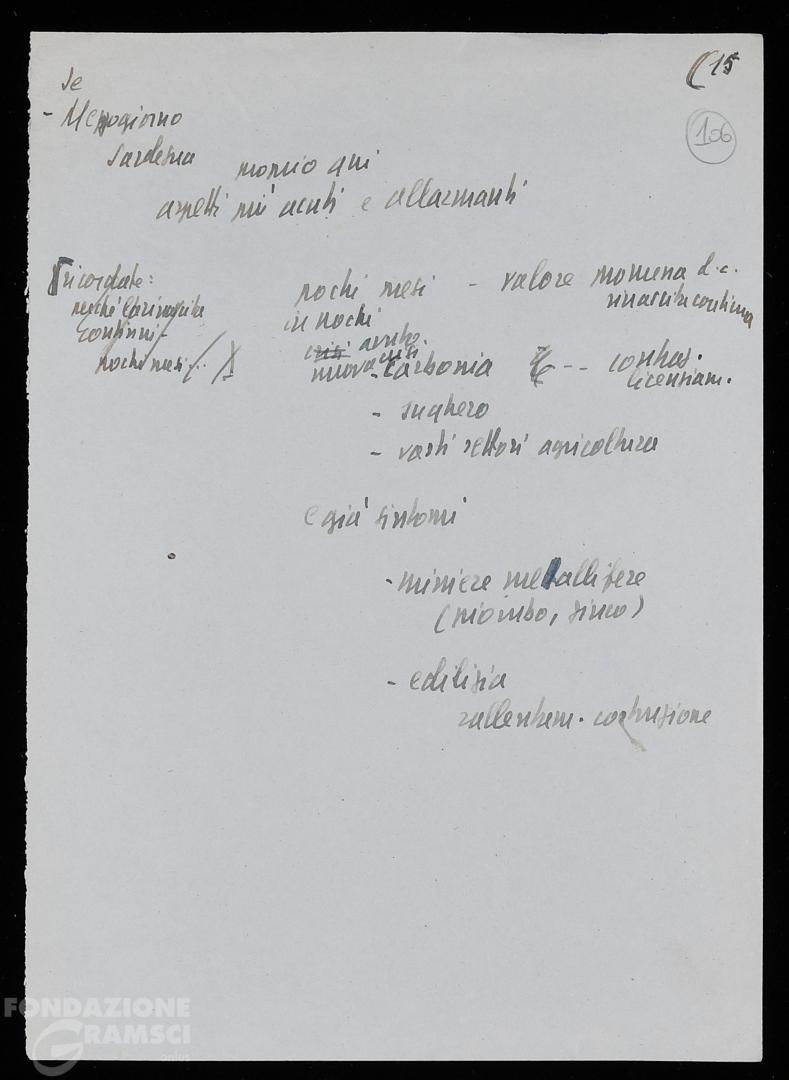 (15
106
Se
- Mezzogiorno
Sardegna proprio qui
aspetti più acuti e allarmanti
Ricordate:
perché la rinascita
continui -
pochi mesi
pochi mesi - valore promessa d.c.
rinascita continua
in pochi
crisi
nuova crisi
- Carbonia -- contras.
licenziam.
- sughero
- vasti settori agricoltura
e già sintomi
- miniere metallifere
(piombo, zinco)
- edilizia
rallentam. costruzione
FONDAZIONE
GRAMSCI
onlus